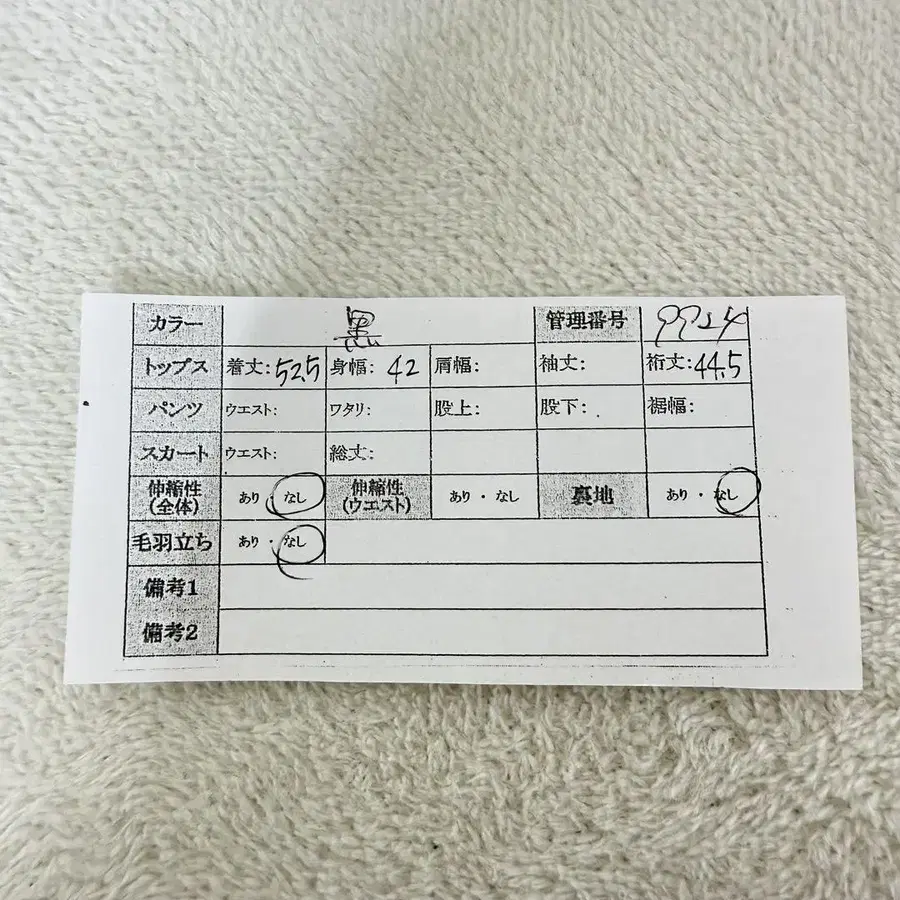 カラー 黒 管理番号 9924
トップス 着丈:52.5 身幅: 42 肩幅: 袖丈: 裄丈:44.5
パンツ ウエスト: ワタリ: 股上: 股下: 裾幅:
スカート ウエスト: 総丈:
伸縮性 あり・なし 伸縮性 あり・なし 裏地 あり・なし
(全体) (ウエスト)
毛羽立ち あり・なし
備考1
備考2